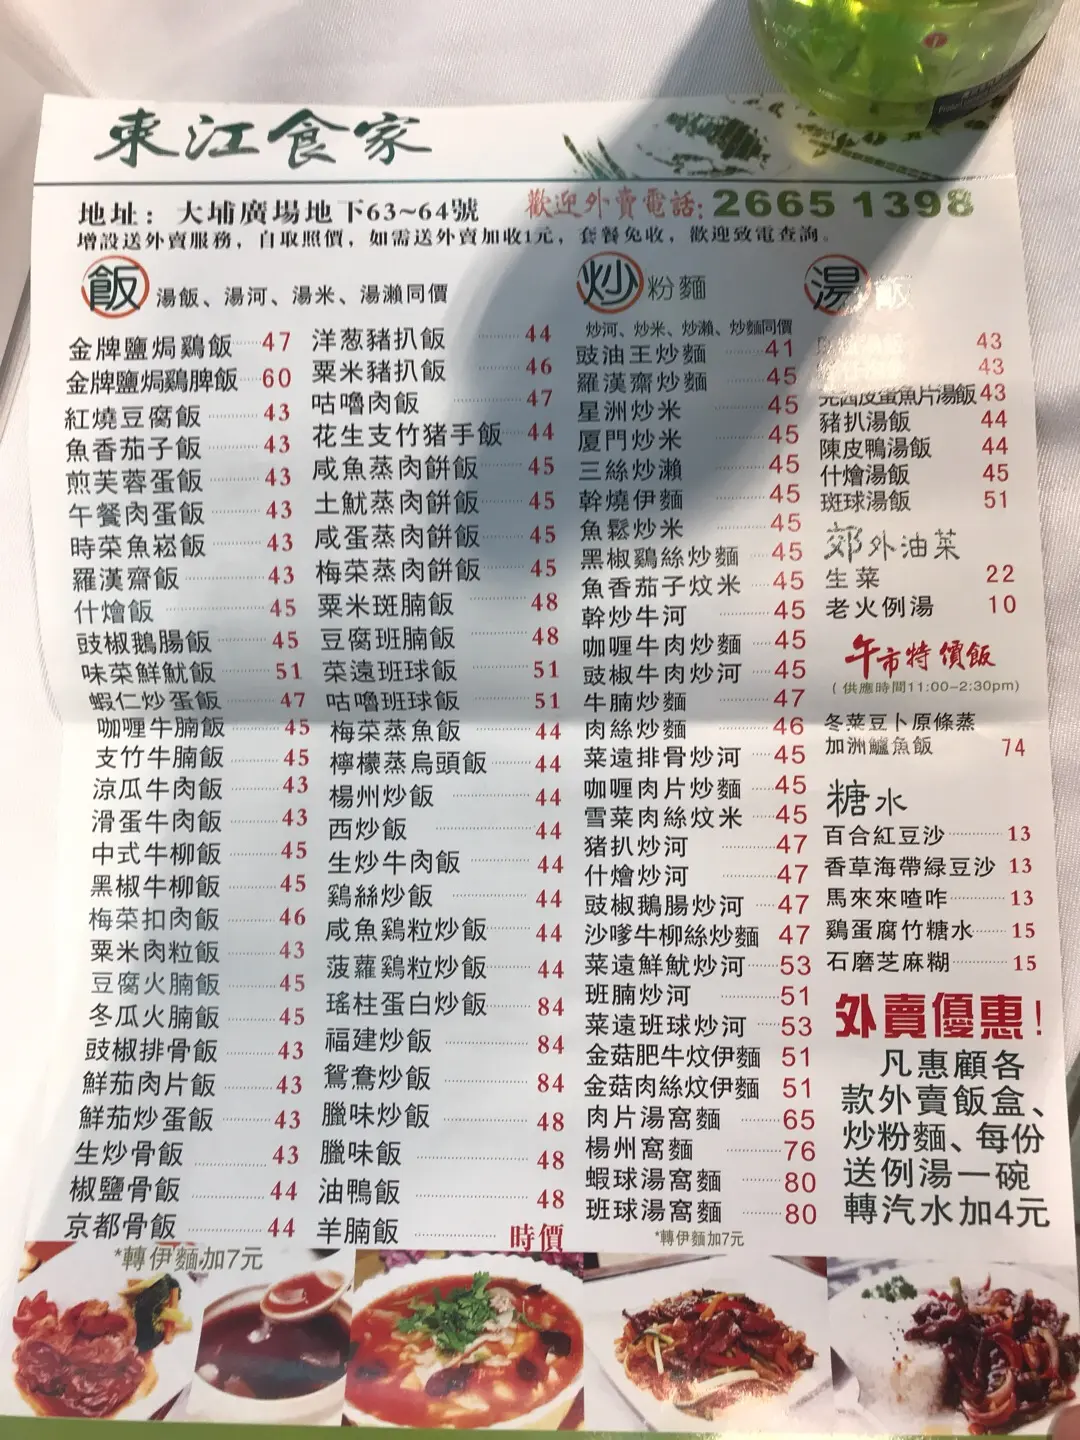 東江食家
地址：大埔廣場地下63~64號
歡迎外賣電話:2665 1398
增設送外賣服務，自取照價，如需送外賣加收1元，套餐免收，歡迎致電查詢。
飯 湯飯、湯河、湯米、湯瀨同價
金牌鹽焗鷄飯 47
金牌鹽焗鷄脾飯 60
紅燒豆腐飯 43
魚香茄子飯 43
煎芙蓉蛋飯 43
午餐肉蛋飯 43
時菜魚崧飯 43
羅漢齋飯 43
什燴飯 45
豉椒鵝腸飯 45
味菜鮮魷飯 51
蝦仁炒蛋飯 47
咖喱牛腩飯 45
支竹牛腩飯 45
涼瓜牛肉飯 43
滑蛋牛肉飯 43
中式牛柳飯 45
黑椒牛柳飯 45
梅菜扣肉飯 46
粟米肉粒飯 43
豆腐火腩飯 45
冬瓜火腩飯 45
豉椒排骨飯 43
鮮茄肉片飯 43
鮮茄炒蛋飯 43
生炒骨飯 43
椒鹽骨飯 44
京都骨飯 44
*轉伊麵加7元
洋葱豬扒飯 44
粟米豬扒飯 46
咕嚕肉飯 47
花生支竹猪手飯 44
咸魚蒸肉餅飯 45
土魷蒸肉餅飯 45
咸蛋蒸肉餅飯 45
梅菜蒸肉餅飯 45
粟米斑腩飯 48
豆腐班腩飯 48
菜遠班球飯 51
咕嚕班球飯 51
梅菜蒸魚飯 44
檸檬蒸烏頭飯 44
楊州炒飯 44
西炒飯 44
生炒牛肉飯 44
鷄絲炒飯 44
咸魚鷄粒炒飯 44
菠蘿鷄粒炒飯 44
瑤柱蛋白炒飯 84
福建炒飯 84
鴛鴦炒飯 84
臘味炒飯 48
臘味飯 48
油鴨飯 48
羊腩飯 時價
炒粉麵
炒河、炒米、炒瀨、炒麵同價
豉油王炒麵 41
羅漢齋炒麵 45
星洲炒米 45
厦門炒米 45
三絲炒瀨 45
幹燒伊麵 45
魚鬆炒米 45
黑椒鷄絲炒麵 45
魚香茄子炆米 45
幹炒牛河 45
咖喱牛肉炒麵 45
豉椒牛肉炒河 45
牛腩炒麵 47
肉絲炒麵 46
菜遠排骨炒河 45
咖喱肉片炒麵 45
雪菜肉絲炆米 45
猪扒炒河 47
什燴炒河 47
豉椒鵝腸炒河 47
沙嗲牛柳絲炒麵 47
菜遠鮮魷炒河 53
班腩炒河 51
菜遠班球炒河 53
金菇肥牛炆伊麵 51
金菇肉絲炆伊麵 51
肉片湯窩麵 65
楊州窩麵 76
蝦球湯窩麵 80
班球湯窩麵 80
*轉伊麵加7元
湯飯
43
43
芫茜皮蛋魚片湯飯 43
豬扒湯飯 44
陳皮鴨湯飯 44
什燴湯飯 45
斑球湯飯 51
郊外油菜
生菜 22
老火例湯 10
午市特價飯
（供應時間11:00-2:30pm）
冬菜豆卜原條蒸
加洲鱸魚飯 74
糖水
百合紅豆沙 13
香草海帶緑豆沙 13
馬來來喳咋 13
鷄蛋腐竹糖水 15
石磨芝麻糊 15
外賣優惠！
凡惠顧各
款外賣飯盒、
炒粉麵、每份
送例湯一碗
轉汽水加4元